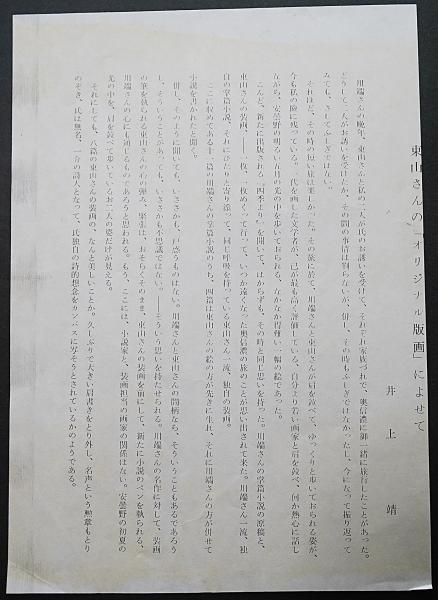 東山さんの「オリジナル版画」によせて
井上 靖
川端さんの晩年、東山さんと私の二人が氏のお誘いを受けて、それぞれ家族づれで、奥信濃に御一緒に旅行したことがあった。
どうして二人がお誘いを受けたか、その間の事情は判らないが、併し、その時もふしぎではなかったし、今になって振り返って
みても、さしてふしぎではない。
それほど、その時の短い旅は楽しかった。その旅に於て、川端さんと東山さんが肩を並べて、ゆっくりと歩いておられる姿が、
今も私の瞼に残っている。一代を画した文学者が、己が最も高く評価している、自分より若い画家と肩を並べ、何か熱心に話し
ながら、安曇野の明るい五月の光の中を歩いておられる。なかなか得難い一幅の絵であった。
こんど、新たに出版される「四季より」を開いて、はからずも、その時と同じ思いを持った。川端さんの掌篇小説の原稿と、
東山さんの装画、――一枚、一枚めくって行って、いつか遠くなった奥信濃の旅のことが思い出されて来た。川端さん一流、独
自の掌篇小説、それにぴたりと寄り添って、同じ呼吸を持っている東山さん一流、独自の装画。
ここに収めてある十二篇の川端さんの掌篇小説のうち、四篇は東山さんの絵の方が先きに生れ、それに川端さんの方が併せて
小説を書かれたと聞く。
併し、そのように聞いても、いささかも、戸惑うものはない。川端さんと東山さんの間柄なら、そういうこともあるであろう
し、そういうことがあっても、いささかも不思議ではない。――そういう思いを持たせられる。川端さんの名作に対して、装画
の筆を執られる東山さんの心の弾み、緊張は、おそらくそのまま、東山さんの装画を前にして、新たに小説のペンを執られる、
川端さんの心にも通じるものであろうと思われる。もう、ここには、小説家と、装画担当の画家の関係はない。安曇野の初夏の
光の中を、肩を並べて歩いているお二人の姿だけが見える。
それにしても、八篇の東山さんの装画の、なんと美しいことか。久しぶりで大きい肩書きをとり外し、名声という勲章もとり
のぞき、氏は無名、一介の詩人となって、氏独自の詩的想念をカンバスに写そうとされているかのようである。